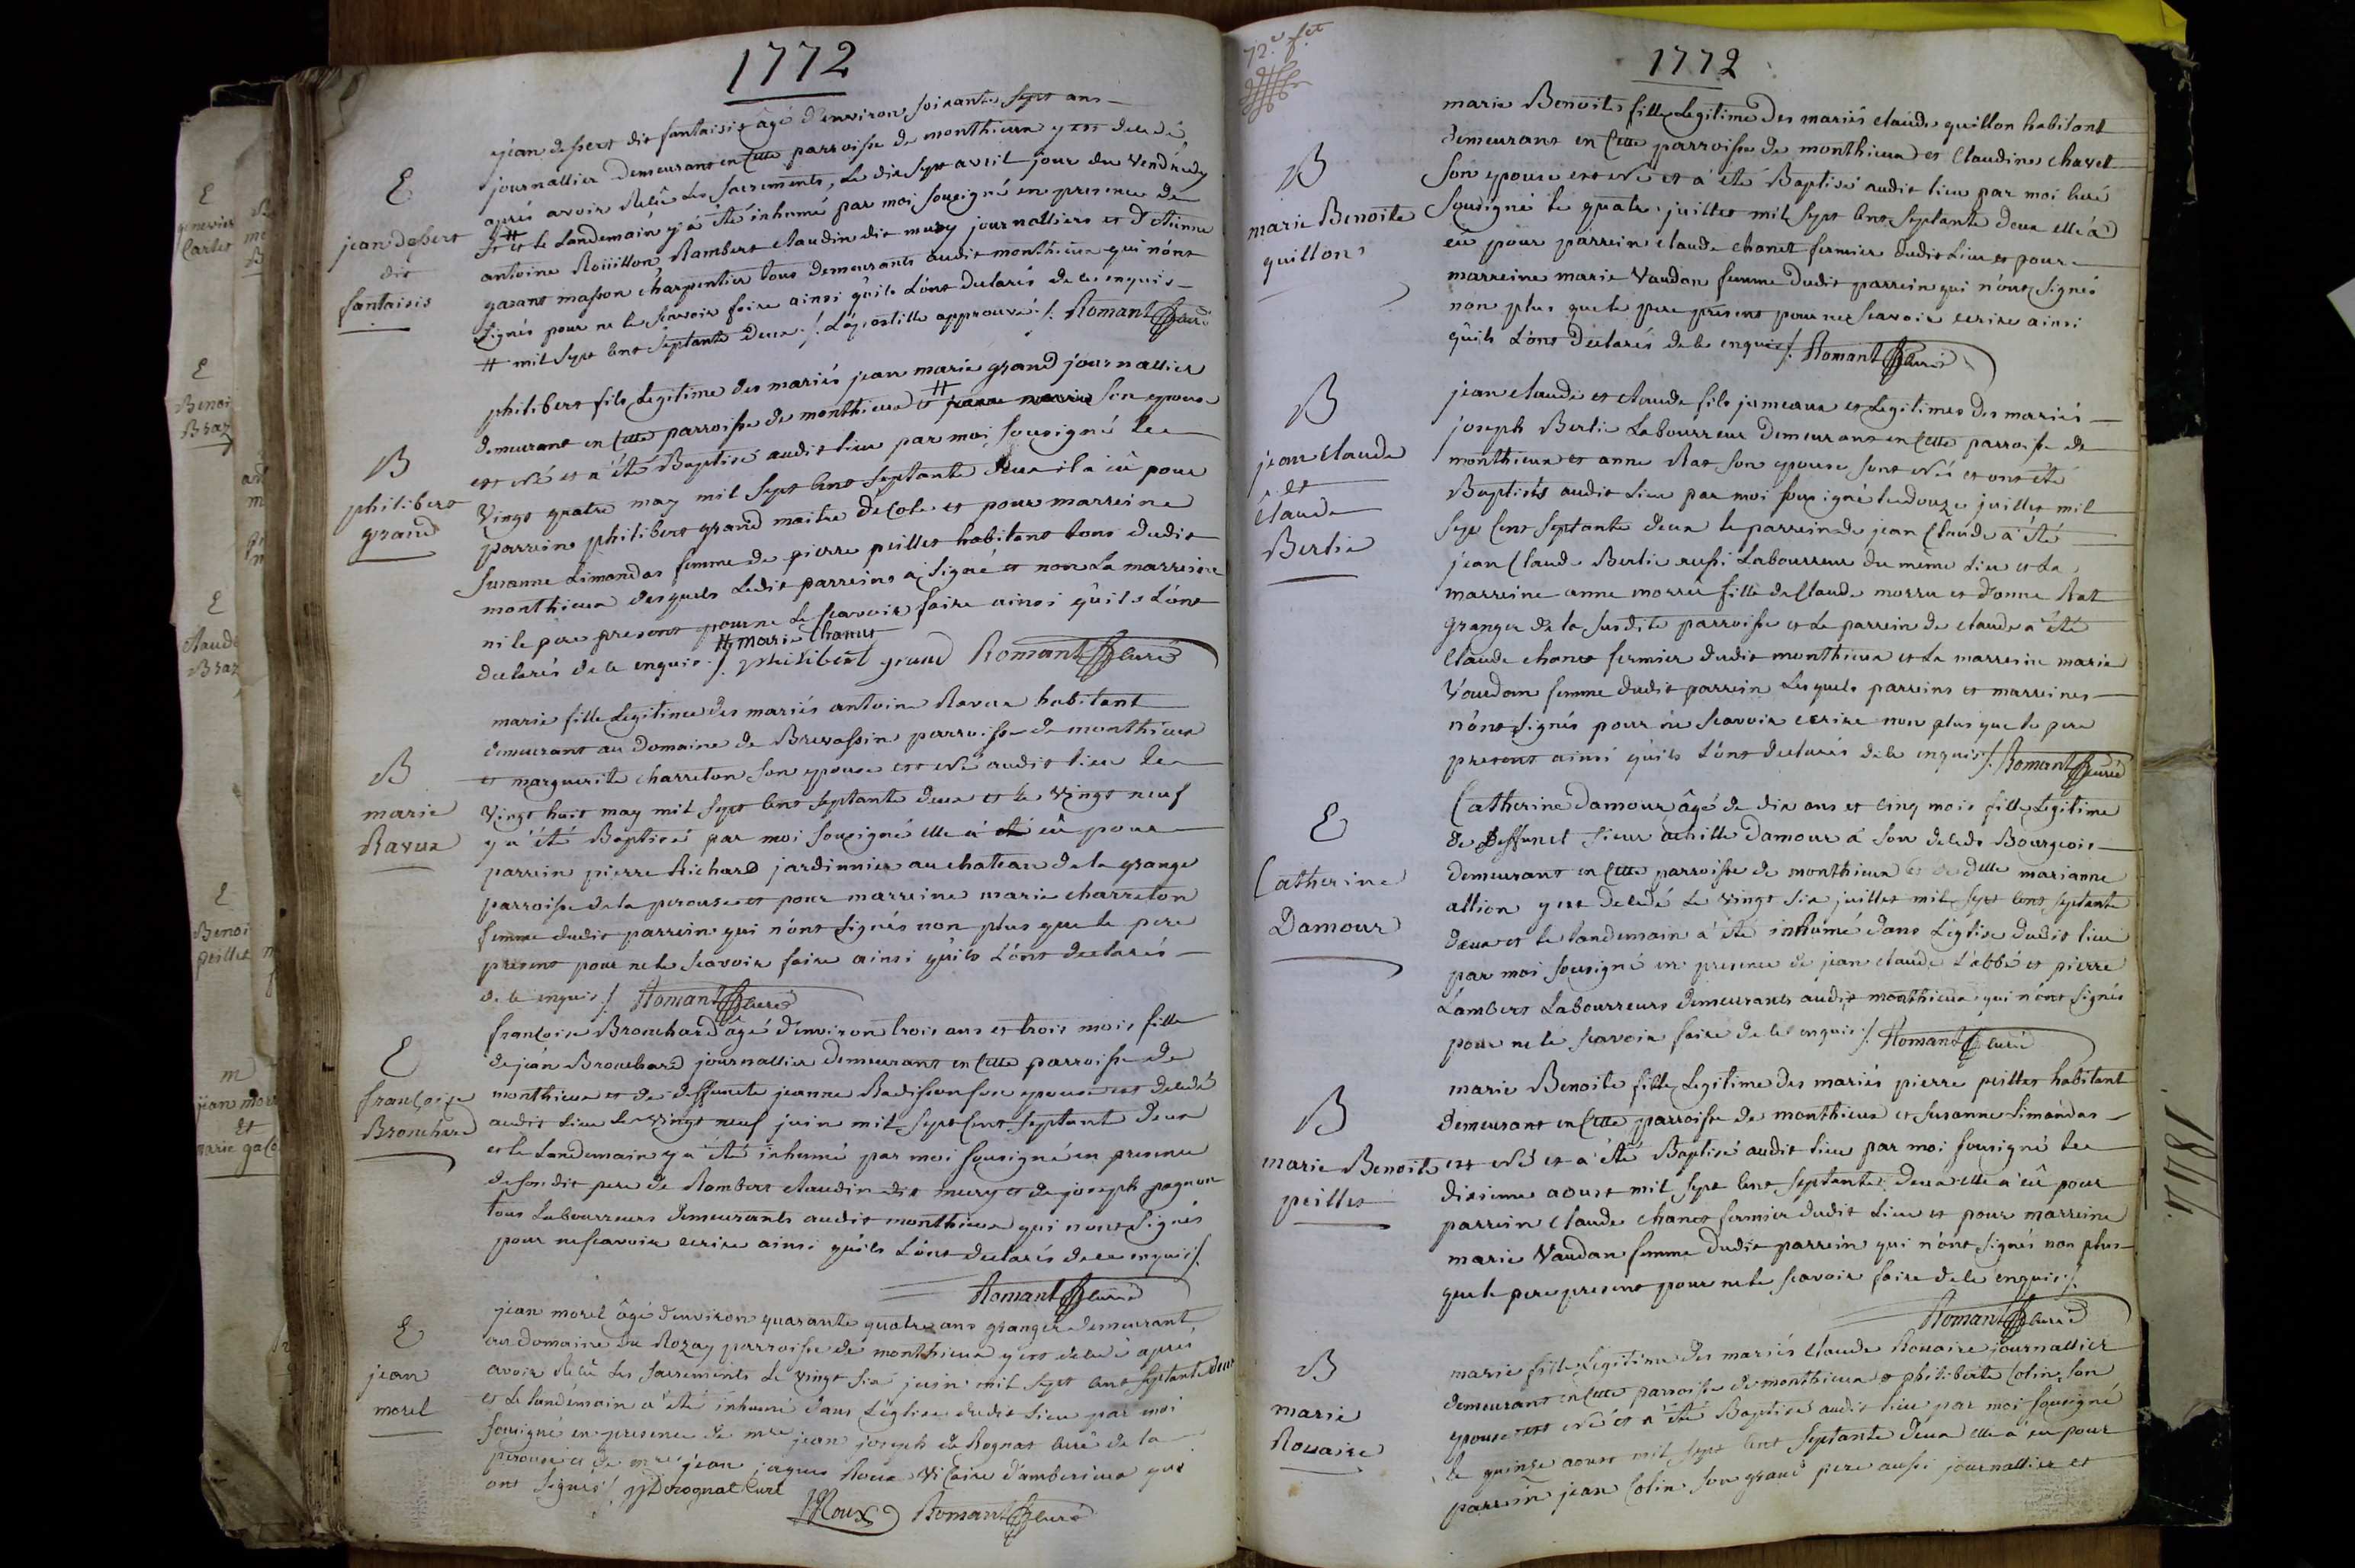 1772
E
jean desert
dit
fantaisis
jean desert dit fantaisis âgé d'environ soixante sept ans
journallier demeurant en Cette parroisse de monthieux y est decedé
aprés avoir Reçû Les sacrements, Le dix sept avril jour du vendredy
# et le Landemain y a été inhumé par moi sousigné en presence de
antoine Roüillon, Rambert Claudin dit mury journalliers et d'etienne
gasant masson charpentier tous demeurants audit monthieux qui n'ont
signés pour ne le scavoir faire ainsi qu'ils L'ont declarés de ce enquis
# mil sept cent septante deux ./. L'apostille approuvé ./. Romant Curé
B
philibert
grand
philibert fils Legitime des mariés jean marie grand journallier
demeurant en Cette parroisse de monthieux et # son epouse
est né et a été Baptisé audit lieu par moi sousigné le
vingt quatre may mil sept cent septante deux il a eû pour
parrein philibert grand maitre decole et pour marreine
susanne Limandas femme de pierre peillet habitant tous dudit
monthieux desquels Ledit parrein a signé et non La marreine
ni le pere present pour ne Le scavoir faire ainsi qu'ils L'ont
# marie Chanus
declarés de ce enquis ./. philibert grand Romant Curé
B
marie
Ravux
marie fille Legitime des mariés antoine Ravux habitant
demeurant au domaine de Brevassin parroisse de monthieux
et marguerite charreton son epouse est né audit lieu le
vingt huit may mil sept cent septante deux et le vingt neuf
y a été Baptisé par moi sousigné elle a eû pour
parrein pierre Richard jardinnier au chateau de la grange
parroisse de la perouse et pour marreine marie charreton
femme dudit parrein qui n'ont signés non plus que le pere
present pour ne le scavoir faire ainsi qu'ils L'ont declarés
de ce enquis ./. Romant Curé
E
françoise
Brouchard
françoise Brouchard âgé d'environ trois ans et trois mois fille
de jean Brouchard journallier demeurant en Cette parroisse de
monthieux et de deffuncte jeanne Radisson son epouse est decedé
audit Lieu Le vingt neuf juin mil sept Cent septante deux
et le Landemain y a été inhumé par moi sousigné en presence
de son dit pere de Rambert Claudin dit mury et de joseph pagnon
tous Labourreurs demeurants audit monthieux qui n'ont signés
pour ne scavoir ecrire ainsi qu'ils L'ont declarés de ce enquis ./.
Romant Curé
E
jean
morel
jean morel âgé d'environ quarante quatre ans granger demeurant
au domaine du Rozay parroisse de monthieux y est decedé apres
avoir Reçû Les sacrements Le vingt six juin mil sept cent septante deux
et Le landemain a été inhumé dans L'eglise dudit Lieu par moi
sousigné en presence de mre jean joseph de Rognat curé de la
perouse et de mre jean jaques Roux vicaire d'amberieux qui
ont signés ./. jjDerognat Curé
JJRoux Romant Curé
1772
B
marie Benoite
guillon
marie Benoite fille Legitime des mariés claude guillon habitant
demeurant en Cette parroisse de monthieux et Claudine chavet
son epouse est né et a été Baptisé audit lieu par moi curé
sousigné le quatre juillet mil sept cent septante deux elle a
eû pour parrein claude chanet fermier dudit Lieu et pour
marreine marie vaudan femme dudit parrein qui n'ont signés
non plus que le pere present pour ne scavoir ecrire ainsi
qu'ils L'ont declarés de ce enquis ./. Romant Curé
B
jean claude
et
claude
Berlie
jean claude et claude fils jumeaux et Legitimes des mariés
joseph Berlie Labourreur demeurant en Cette parroisse de
monthieux et anne Rat son epouse sont nés et ont été
Baptisés audit Lieu par moi sousigné le douze juillet mil
sept Cent septante deux le parrein de jean Claude a été
jean Claude Berlie aussi Labourreur du même Lieu et La
marreine anne morru fille de Claude morru et d'anne Rat
granger de la susdite parroisse et Le parrein de claude a été
Claude chanet fermier dudit monthieux et La marreine marie
vaudan femme dudit parrein Lesquels parreins et marreines
n'ont signés pour ne scavoir ecrire non plus que le pere
present ainsi qu'ils L'ont declarés de ce enquis ./. Romant Curé
E
Catherine
Damour
Catherine Damour âgé de dix ans et cinq mois fille Legitime
de Deffunct sieur achille Damour a son deceds Bourgeois
demeurant en Cette parroisse de monthieux et de delle marianne
allion y est decedé Le vingt six juillet mil sept cent septante
deux et le landemain a été inhumé dans L'eglise dudit lieu
par moi sousigné en presence de jean claude Labbé et pierre
Lambert Labourreurs demeurants audit monthieux qui n'ont signés
pour ne le scavoir faire de ce enquis ./. Romant Curé
B
marie Benoite
peillet
marie Benoite fille Legitime des mariés pierre peillet habitant
demeurant en Cette parroisse de monthieux et susanne Limandas
est né et a été Baptisé audit lieu par moi sousigné le
dixieme aoust mil sept cent septante deux elle a eû pour
parrein Claude chanet fermier dudit Lieu et pour marreine
marie vaudan femme dudit parrein qui n'ont signés non plus
que le pere present pour ne le scavoir faire de ce enquis ./.
Romant Curé
B
marie
Rouaire
marie fille Legitime des mariés Claude Rouaire journallier
demeurant en Cette parroisse de monthieux et philiberte Colin son
epouse est né et a été Baptisé audit lieu par moi sousigné
le quinze aoust mil sept cent septante deux elle a eu pour
parrein jean Colin son grand pere aussi journallier et
1844